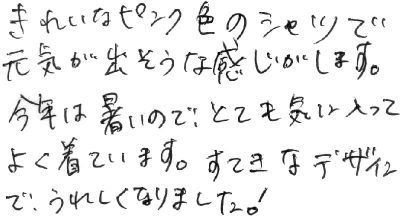 きれいなピンク色のシャツで
元気が出そうな感じがします。
今年は暑いので、とても気に入って
よく着ています。すてきなデザイン
で、うれしくなりました。!